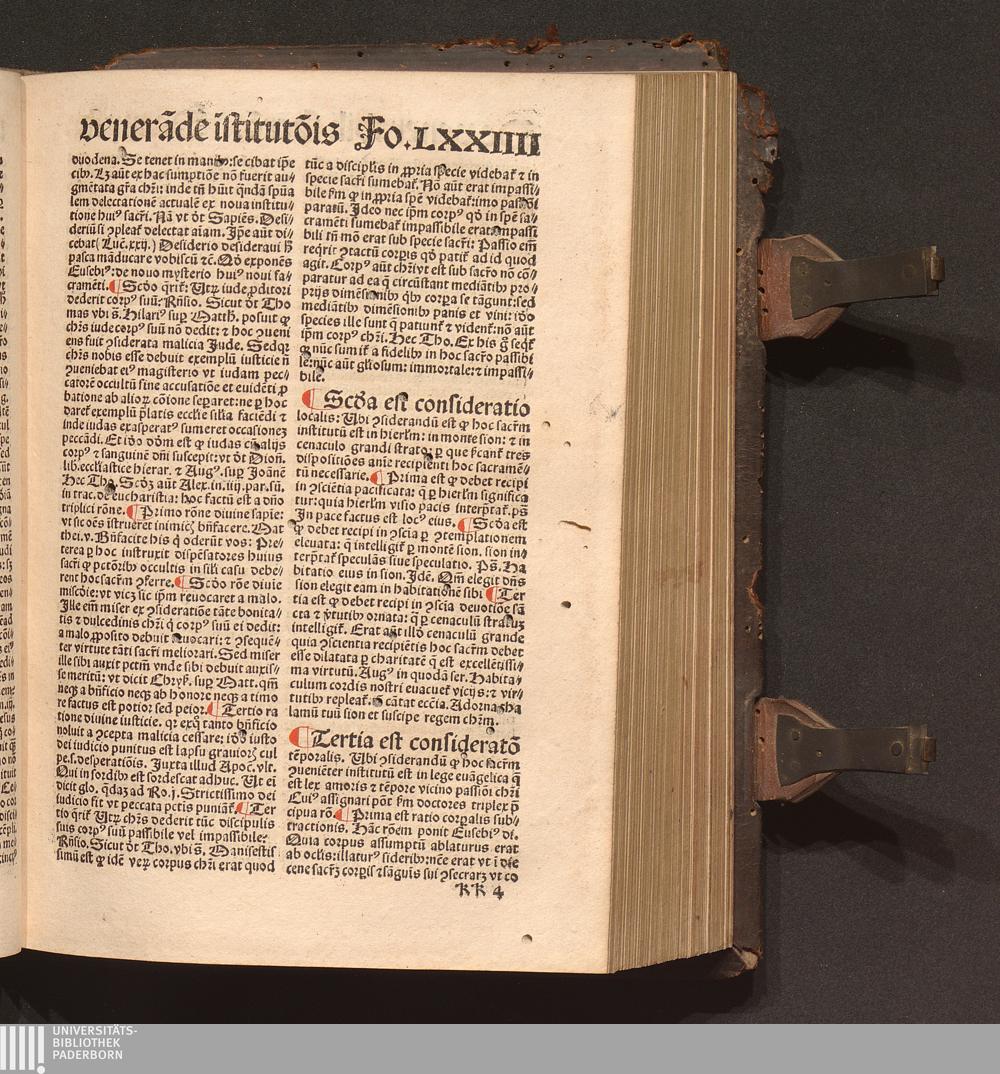 venerãde ĩstitutõis Fo.LXXIIII
duodena. Se tenet in manibꝰ: se cibat ip̃e
cibꝰ. Lꝫ aũt ex hac sumptiõe nõ fuerit au⸗
gmẽtata gr̃a chr̃i: inde tñ hũit q̃ndã sp̃ua
lem delectationẽ actualẽ ex noua institu⸗
tione huiꝰ sacr̃i. Nã vt d̃t Sapiẽs. Desi⸗
deriũ si ꝯpleat̃ delectat aĩam. Ip̃e aũt di⸗
cebat (Luc̃.xxij.) Desiderio desideraui h̃
pasca mãducare vobiscũ ⁊c̃. Qd̃ exponẽs
Eusebiꝰ: de nouo mysterio huiꝰ noui sa⸗
cramẽti. ¶ Scd̃o q̃rit̃: Utꝝ iude ꝓditori
dederit corpꝰ suũ: Rñsio. Sicut d̃t Tho
mas vbi s̃. Hilariꝰ suꝑ Matth̃. posuit ꝙ
chr̃s iude corpꝰ suũ nõ dedit: ⁊ hoc ꝯueni
ens fuit ꝯsiderata malicia Jude. Sed qꝛ
chr̃s nobis esse debuit exemplũ iusticie ñ
ꝯueniebat eiꝰ magisterio vt iudam pec⸗
catorẽ occultũ sine accusatiõe et euidẽti ꝓ
batione ab alioꝝ cõioneseꝑaret: ne ꝑ hoc
daret̃ exemplũ p̃latis eccl̃ie sil̃ia faciẽdi ⁊
inde iudas exasperatꝰ sumeret occasionẽ
peccãdi. Et iõo dõm est ꝙ iudas cũ alijs
corpꝰ ⁊ sanguinẽ dñi suscepit: vt d̃t Dion̄.
lib. eccl̃iastice hierar. ⁊ Augꝰ. suꝑ Joãnẽ
Hec Tho. Scd̃ꝫ aũt Alex. in. iiij. par. sũ.
in trac. de eucharistia: hoc factũ est a dño
triplici rõne. ¶ Primo rõne diuine sapie:
vt sc̃ os ẽs ĩstrueret inimicꝭ bñfacere. Mat
thei. v. Bñfacite his q̃ oderũt vos: Pre⸗
terea ꝑ hoc instruxit dispẽsatores huius
sacr̃i ꝙ pctõribꝰ occultis in sil̃i casu debe⸗
rent hoc sacr̃m ꝯferre. ¶ Scd̃o rõe diuie
miscõie: vt vicꝫ sic ip̃m reuocaret a malo.
Ille em̃ miser ex ꝯsideratiõe tãte bonita⸗
tis ⁊ dulcedinis chr̃i q̃ corpꝰ suũ ei dedit:
a malo ꝓposito debuit reuocari: ⁊ ꝯsequẽ⸗
ter virtute tãti sacr̃i meliorari. Sed miser
ille sibi auxit pctm̃ vnde sibi debuit auxis⸗
se meritũ: vt dicit Chryẞ. suꝑ Matt. qm̃
neqꝫ a bñficio neqꝫ ab honore neqꝫ a timo
re factus est potior sed peior. ¶ Tertio ra
tione diuine iusticie. qꝛ exq̃ tanto bñficio
noluit a ꝯcepta malicia cessare: iõo iusto
dei iudicio punitus est lapsu grauiorꝭ cul
pe. s. desperatiõis. Juxta illud Apoc̃. vlt.
Qui in sordibꝰ est sordescat adhuc. Ut ei
dicit glo. q̃dãꝫ ad Ro. j. Strictissimo dei
iudicio fit vt peccata pctis puniãt̃. ¶ Ter
tio q̃rit̃ Utꝝ chr̃s dederit tũc discipulis
suis corpꝰ suũ passibile vel impassibile:
Rñsio, Sicut d̃t Tho. vbi s̃. Manifestis
simũ est ꝙ idẽ veꝝ corpus chr̃i erat quod
tũc a discipl̃is in ꝓpria specie videbat̃ ⁊ in
specie sacr̃i sumebat̃. Nõ aũt erat impassi⸗
bile ẞm ꝙ in ꝓpria sp̃e videbat̃: imo passiõi
paratũ. Ideo nec ip̃m corpꝰ qd̃ in sp̃e sa⸗
cramẽti sumebat̃ impassibile erat. Impassi
bili tñ mõ erat sub specie sacr̃i: Passio em̃
req̃rit ꝯtactũ corꝑis qd̃ patit̃ ad id quod
agit. Corpꝰ aũt chr̃i vt est sub sacr̃o nõ cõ⸗
paratur ad ea q̃ circũstant mediãtibꝰ pro⸗
prijs dimẽsiõibꝰ qbꝰ corꝑa se tãgunt: sed
mediãtibꝰ dimẽsiõibꝰ panis et vini: iõo
species ille sunt q̃ patiunt̃ ⁊ vident̃: nõ aũt
ip̃m corpꝰ chr̃i. Hec Tho. Ex his q̃ seqt̃
ꝙ nũc sumit̃ a fidelibꝰ in hoc sacr̃o passibi
le: nũc aũt gl̃iosum: immortale: ⁊ impassi⸗
bile.
¶ Scd̃a est consideratio
localis: Ubi ꝯsiderandũ est ꝙ hoc sacr̃m
institutũ est in hierl̃m: in monte sion: ⁊ in
cenaculo grandi strato: ꝑ que ẞcant̃ tres
dispositiões aĩe recipienti hoc sacramẽ⸗
tũ necessarie. ¶ Prima est ꝙ debet recipi
in ꝯsciẽtia pacificata: q̃ ꝑ hierl̃m significa
tur: quia hierl̃m visio pacis interp̃tat̃. ps̃
In pace factus est locꝰ eius. ¶ Scd̃a est
ꝙ debet recipi in ꝯscia ꝑ ꝯtemplationem
eleuata: q̃ intelligit̃ ꝑ montẽ sion. sion in⸗
terp̃tat̃ speculãs siue speculatio. Ps̃. Ha
bitatio eius in sion. Idẽ. Qm̃ elegit dñs
sion elegit eam in habitationẽ sibi ¶ Ter
tia est ꝙ debet recipi in ꝯscia deuotiõe sã
cta ⁊ ṽtutibꝰ ornata: q̃ ꝑ cenaculũ stratuꝫ
intelligit̃. Erat aũt illd̃ cenaculũ grande
quia ꝯscientia recipiẽtis hoc sacr̃m debet
esse dilatata ꝑ charitatẽ q̃ est excellẽtissi⸗
ma virtutũ. Augꝰ in quodã ser. Habita⸗
culum cordis nostri euacuet̃ vicijs: ⁊ vir⸗
tutibꝰ repleat̃. Sic cãtat ecc̃ia. Adorna tha
lamũ tuũ sion et suscipe regem chr̃m.
¶ Tertia est consideratõ
tẽporalis. Ubi ꝯsiderandũ ꝙ hoc sacr̃m
ꝯueniẽter institutũ est in lege euãgelica q̃
est lex amoris ⁊ tẽpore vicino passiõi chr̃i
Cuiꝰ assignari põt ẞm doctores triplex p̃
cipua rõ. ¶ Prima est ratio corꝑalis sub⸗
tractionis. Hãc rõem ponit Eusebiꝰ di.
Quia corpus assumptũ ablaturus erat
ab ocl̃is: illaturꝰ sideribꝰ: nc̃ẽ erat vt ĩ die
cene sacr̃ꝫ corꝑis ⁊ sãguĩs sui ꝯsecrarꝫ vt co
KK 4
UNIVERSITÄTS-
BIBLIOTHEK
PADERBORN